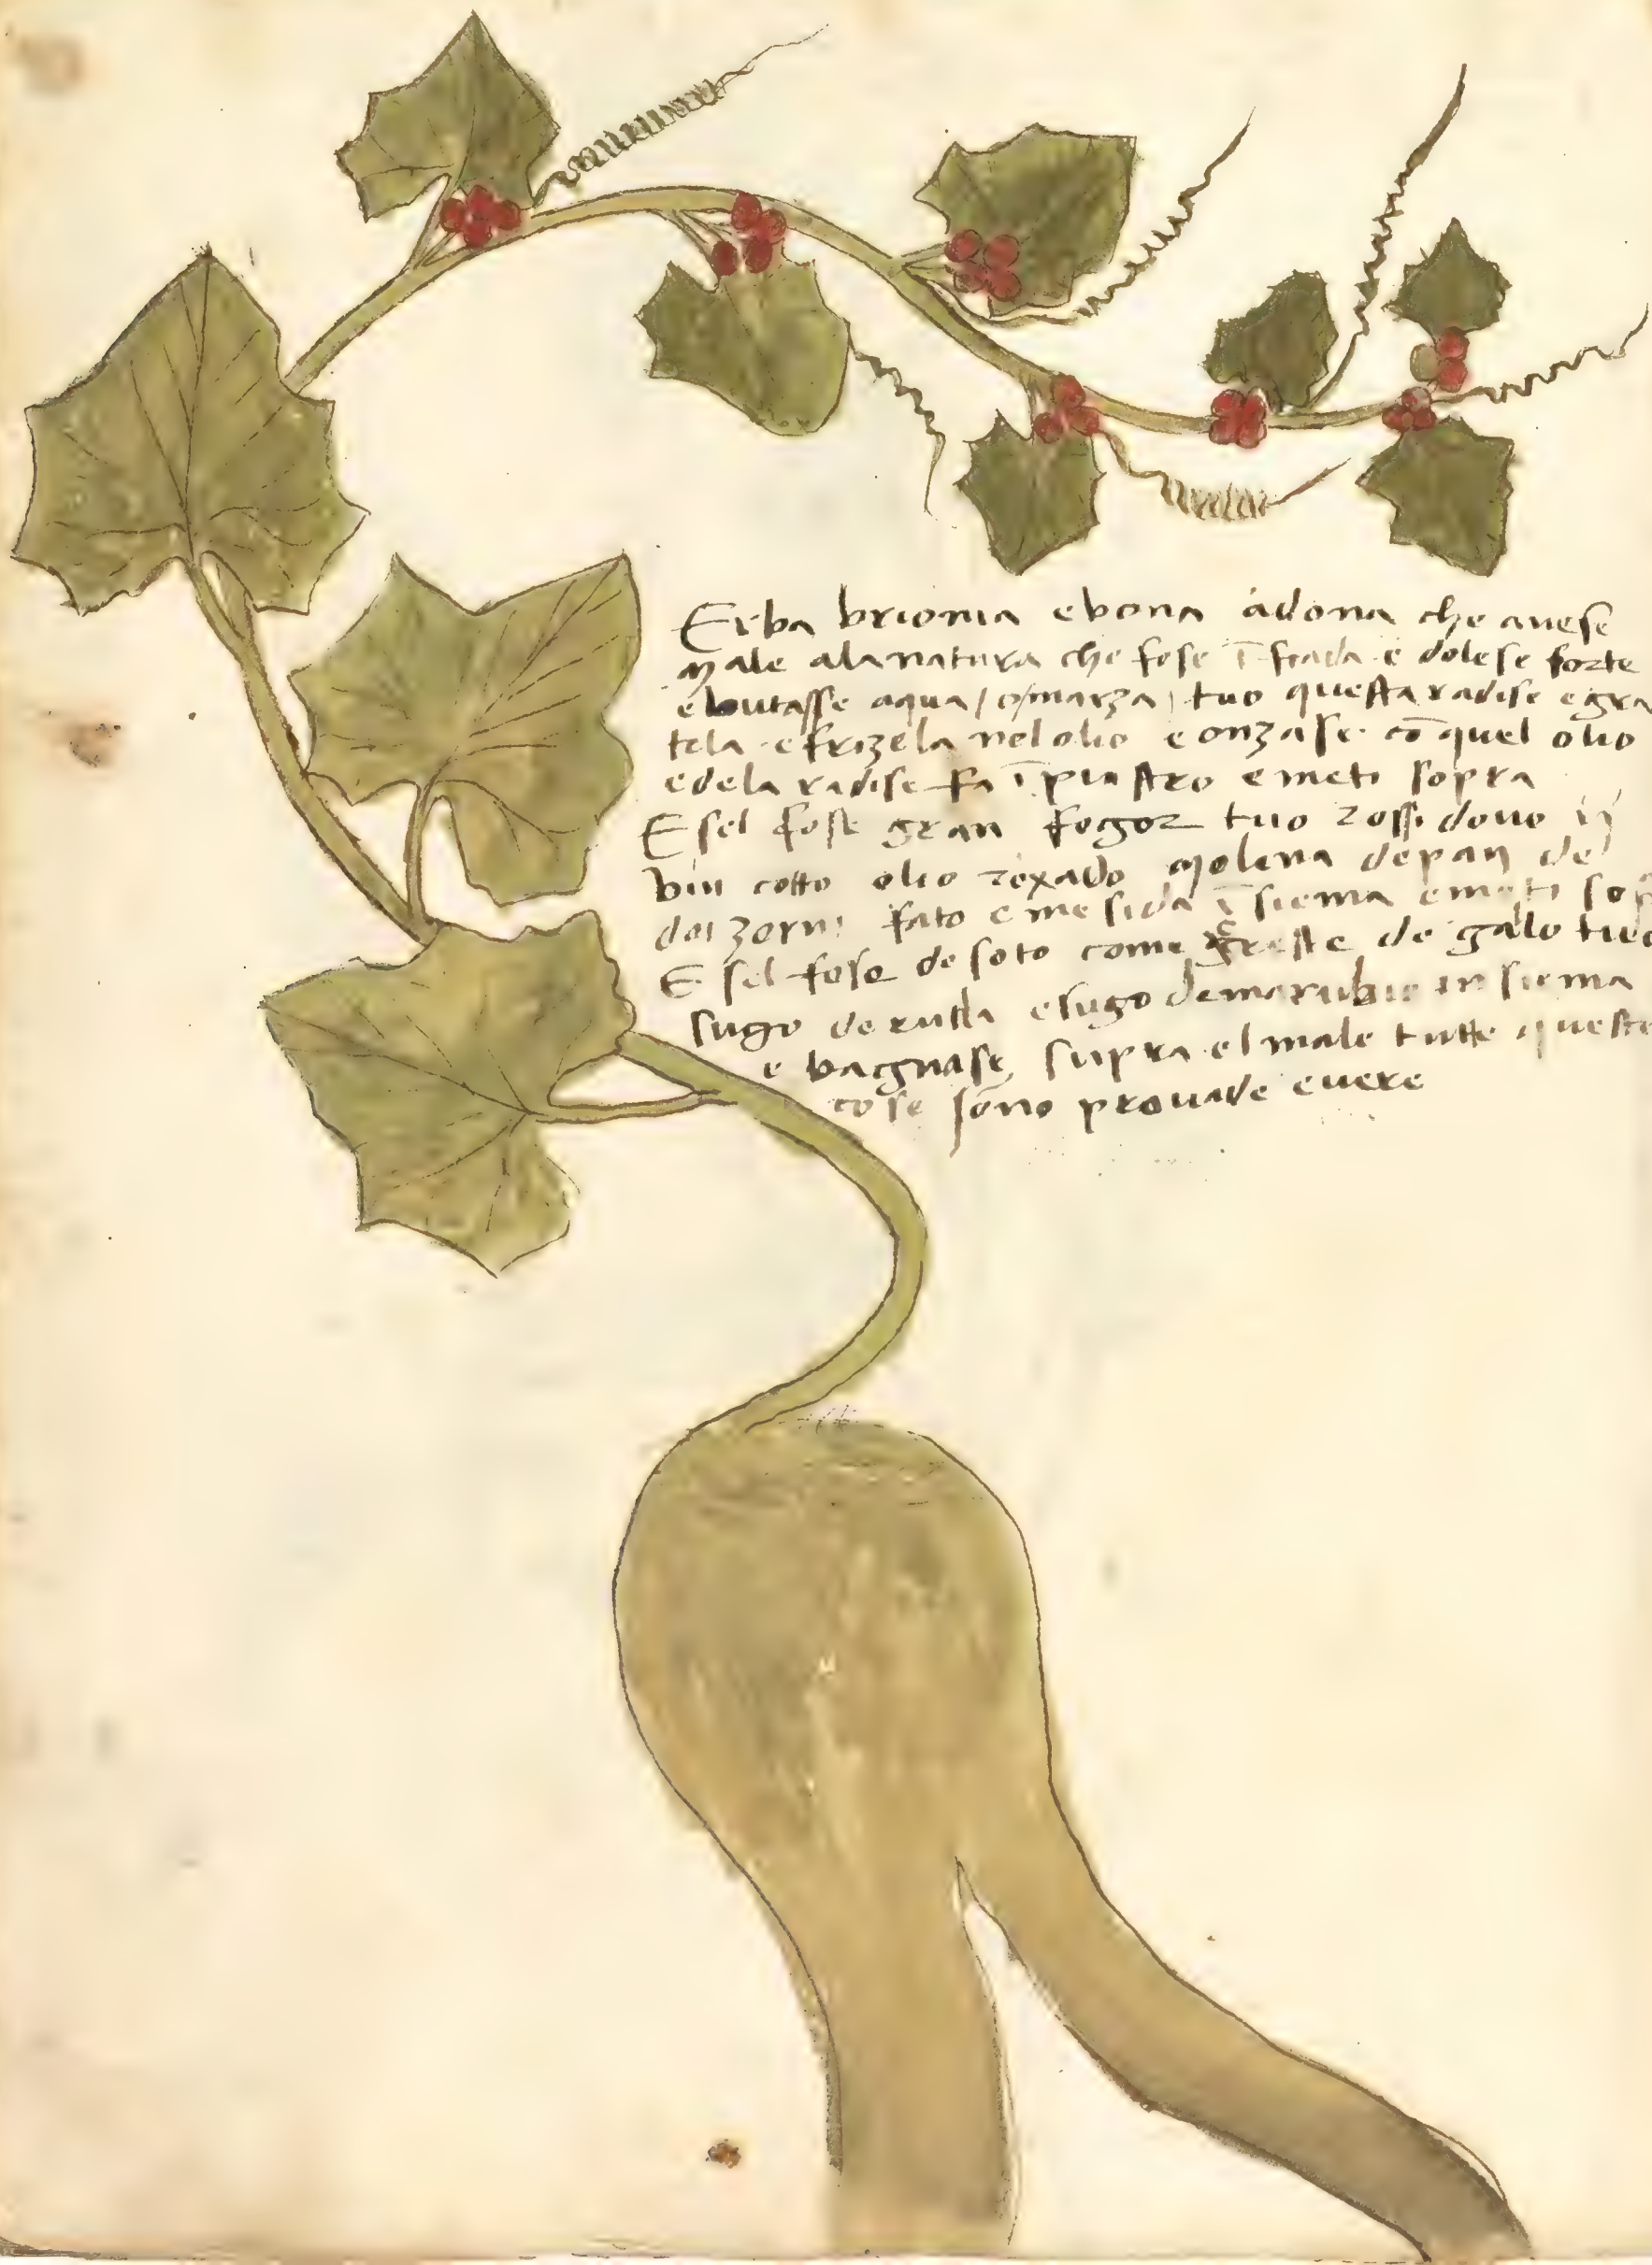 Erba brionia e bona a dona che auese
male ala natura che fose ī fiada e dolese forte
e butasse aqua / o / marza / tuo questa radise e gra
tela e frizela nel olio e onzase cō quel olio
e dela radise fa ī piastro e meti sopra
E sel fose gran fogor tuo rossi douo ij
vin cotto olio roxado molena de pan de
doi zorni fato e mesida ī siema e meti sop
E sel fose de soto come greste de galo tuo
sugo de rutta e sugo de marubio in siema
e bagnase supra el male tutte queste
cose sono prouade e uere